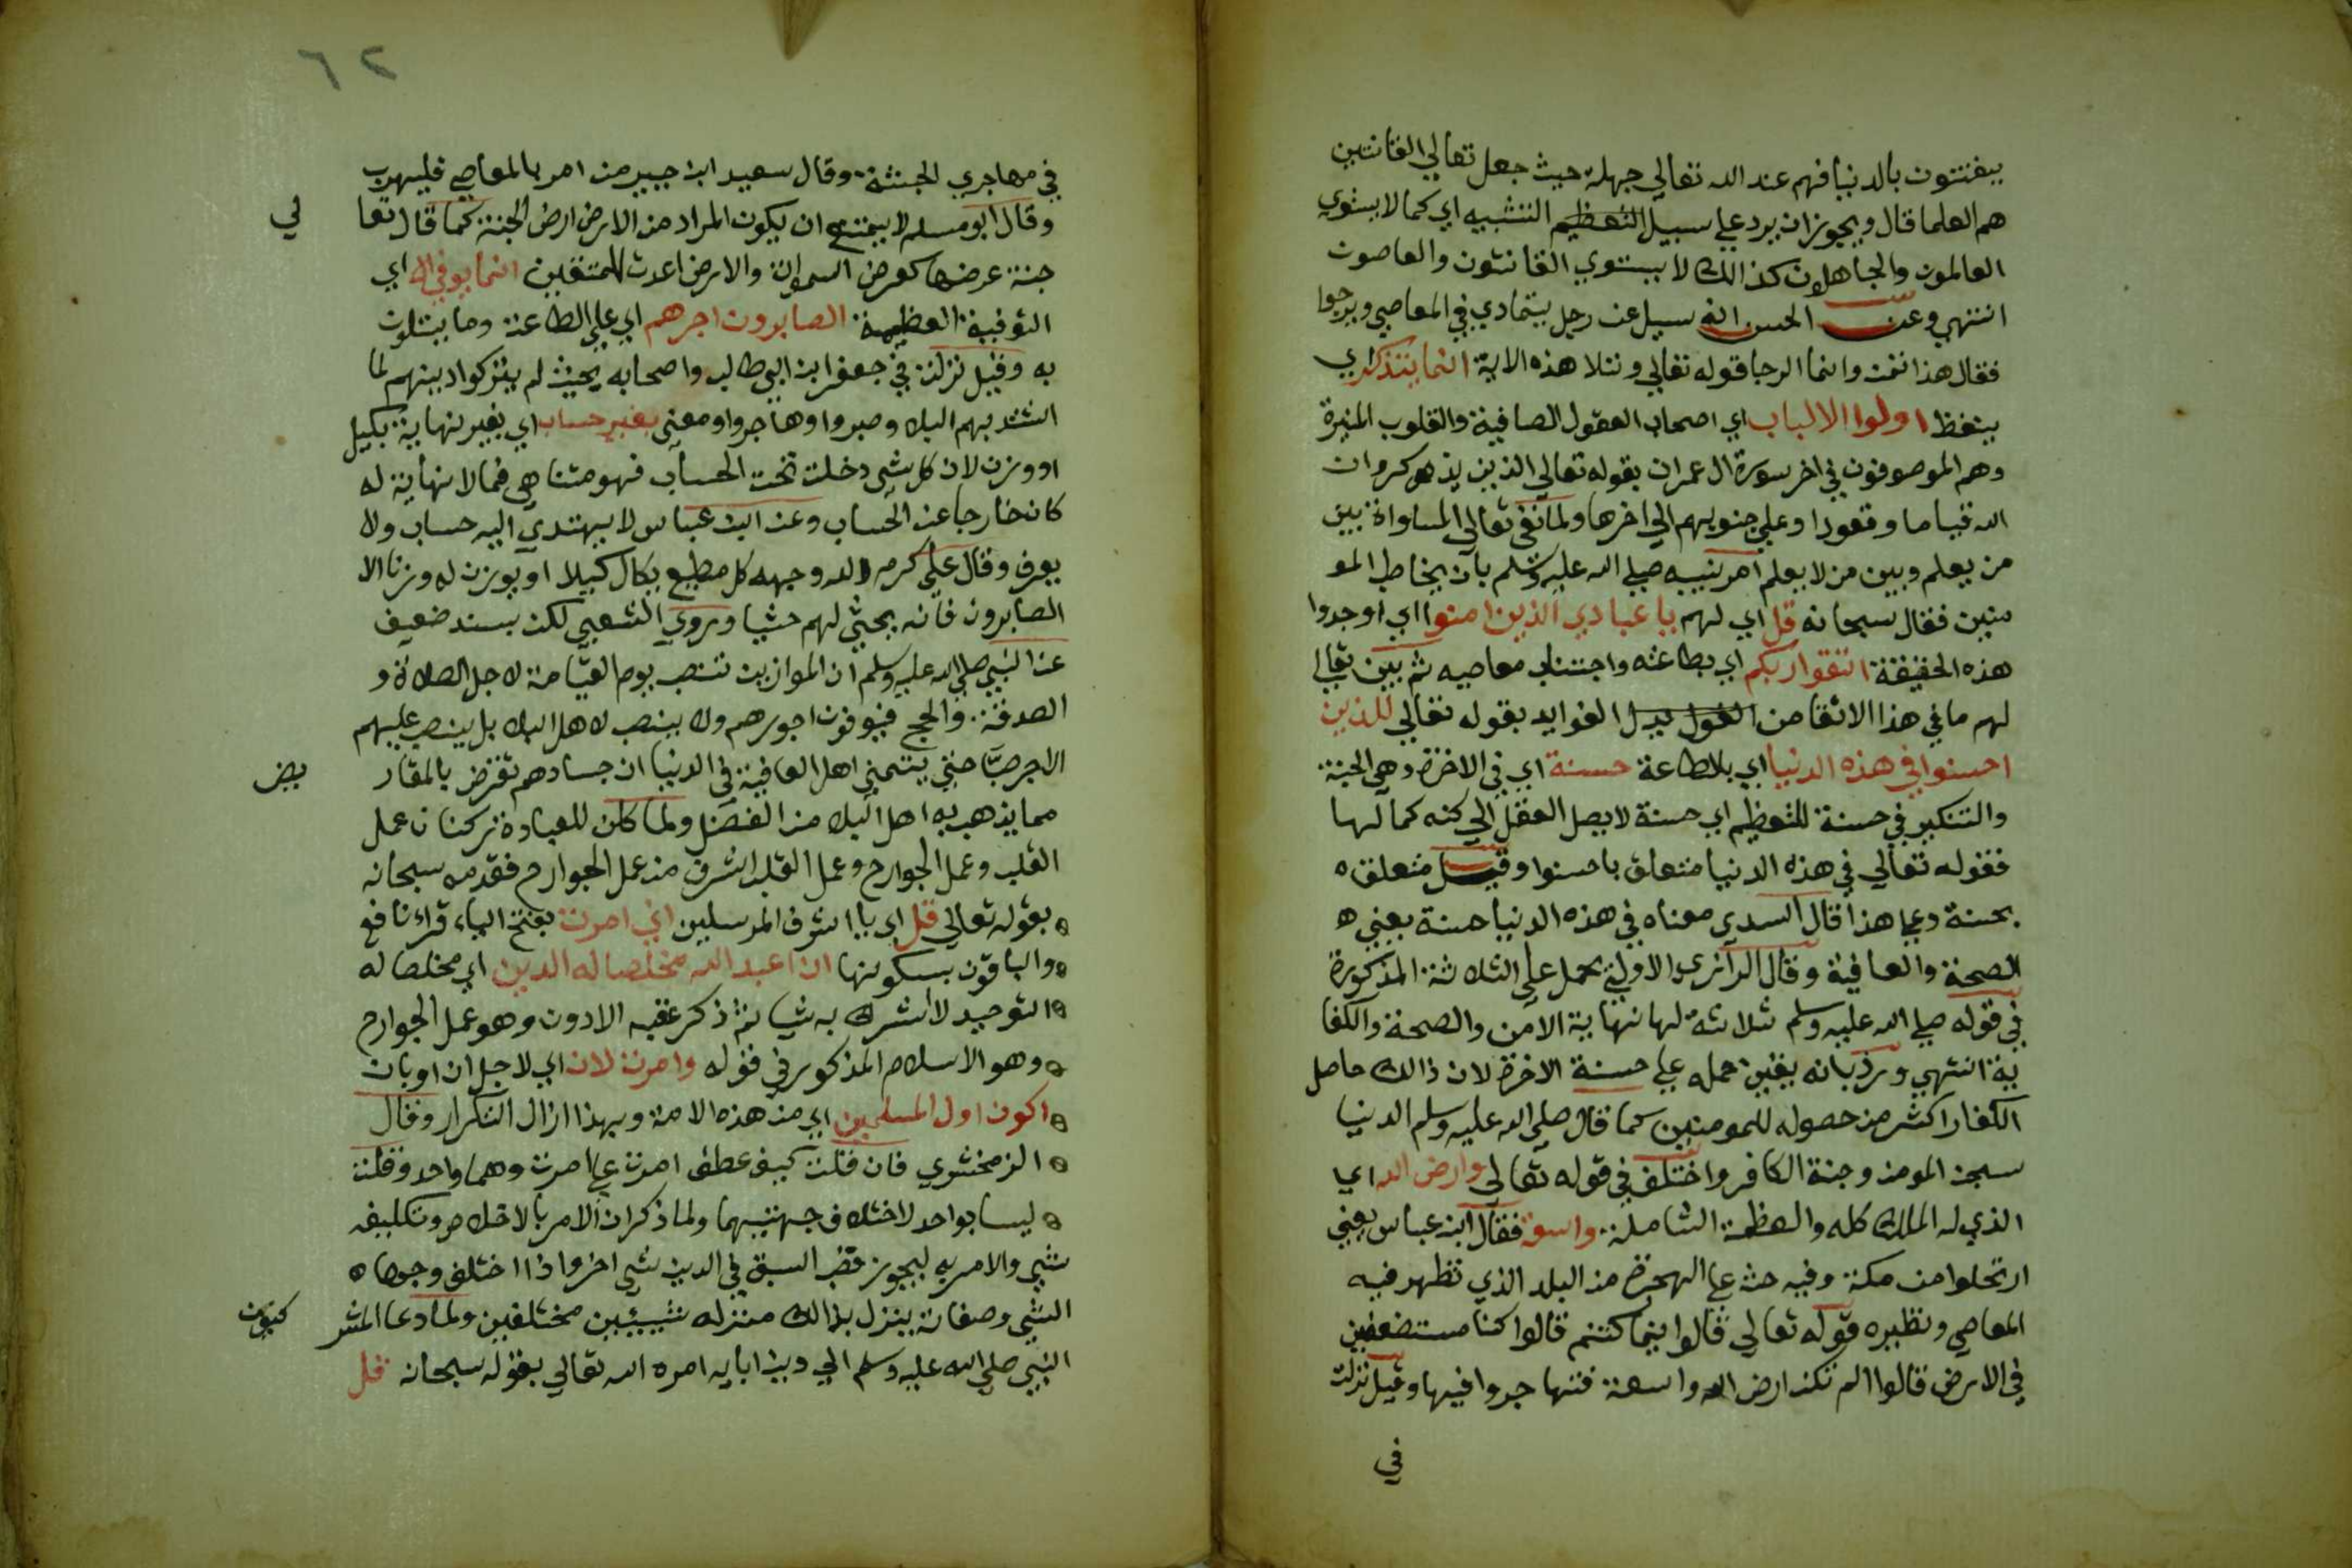 يفتتنون بالدنيا فهم عند الله تعالي جهلة حيث جعل تعالي القانتين
هم العلما قال ويجوز ان يرد علي سبيل التعظيم التشبيه اي كما لا يستوي
العالمون والجاهلون كذالك لا يستوي القانتون والعاصون
انتهي وعن الحسن انه سيل عن رجل يتمادي في المعاصي ويرجوا
فقال هذا تمن وانما الرجا قوله تعالي وتلا هذه الاية انما يتذكر اي
يتعظ اولوا الالباب اي اصحاب العقول الصافية والقلوب المنيرة
وهم الموصوفون في اخر سورة ال عمران بقوله تعالي الذين يذكرون
الله قياما وقعودا وعلي جنوبهم الي اخرها ولما نفي تعالي المساواة بين
من يعلم وبين من لا يعلم امر نبيه صلي الله عليه وسلم بان يخاطب المو
منين فقال سبحانه قل اي لهم يا عبادي الذين امنوا اي اوجدوا
هذه الحقيقة اتقوا ربكم اي بطاعته واجتناب معاصيه ثم بين تعالي
لهم ما في هذا الاتقا من القول بدل الفوايد بقوله تعالي للذين
احسنوا في هذه الدنيا اي بالطاعة حسنة اي في الاخرة وهي الجنة
والتنكير في حسنة للتعظيم اي حسنة لا يصل العقل الي كنه كمالها
فقوله تعالي في هذه الدنيا متعلق باحسنوا وقيل متعلق ه
بحسنة وعلي هذا قال السدي معناه في هذه الدنيا حسنة يعني ه
الصحة والعافية وقال الرازي الاولي يحمل علي الثلاثة المذكورة
في قوله صلي الله عليه وسلم ثلاثة لها نهاية الامن والصحة والكفا
ية انتهي ورد بانه يتعين حمله علي حسنة الاخرة لان ذالك حاصل
الكفار اكثر من حصوله للمومنين كما قال صلي الله عليه وسلم الدنيا
سجن المومن وجنة الكافر واختلف في قوله تعالي وارض الله اي
الذي له الملك كله والعظمة الشاملة واسعة فقال ابن عباس يعني
ارتحلوا من مكة وفيه حث علي الهجرة من البلد الذي تظهر فيه
المعاصي ونظيره قوله تعالي قالوا فيما كنتم قالوا كنا مستضعفين
في الارض قالوا الم تكن ارض الله واسعة فتهاجروا فيها وقيل نزلت
في
٦٢
في مهاجري الحبشة وقال سعيد ابن جبير من امر بالمعاصي فليهرب
وقال ابو مسلم لا يمتنع ان يكون المراد من الارض ارض الجنة كما قال تعا
لي
جنة عرضها كعرض السموات والارض اعدت للمتقين انما يوفي اي
التوفية العظيمة الصابرون اجرهم اي علي الطاعة وما يبتلون
به وقيل نزلت في جعفر ابن ابي طالب واصحابه بحيث لم يتركوا دينهم لما
اشتد بهم البلا وصبروا وهاجروا ومعني بغير حساب اي بغير نهاية بكيل
او وزن لان كل شي دخلت تحت الحساب فهو متناهي فما لا نهاية له
كان خارجا عن الحساب وعن ابن عباس لا يهتدي اليه حساب ولا
يعرف وقال علي كرم الله وجهه كل مطيع يكال كيلا او يوزن له وزنا الا
الصابرون فانه يحثي لهم حثيا وروي الشعبي لكن بسند ضعيف
عن النبي صلي الله عليه وسلم ان الموازين تنصب يوم القيامة لاجل الصلاة و
الصدقة والحج فيوفون اجورهم ولا ينصب لاهل البلا بل ينصب عليهم
الاجر صبا حتي يتمني اهل العافية في الدنيا ان جسادهم تقرض بالمقار
يض
مما يذهب به اهل البلا من الفضل ولما كان للعبادة ركنان عمل
القلب وعمل الجوارح وعمل القلب اشرف من عمل الجوارح فقدمه سبحانه
بقوله تعالي قل اي يا اشرف المرسلين اني امرت بفتح الياء قراء نافع
والباقون بسكونها ان اعبد الله مخلصا له الدين اي مخلصا له
التوحيد لا اشرك به شيا ثم ذكر عقبه الادون وهو عمل الجوارح
وهو الاسلام المذكور في قوله وامرت لان اي لاجل ان او بان
اكون اول المسلمين اي من هذه الامة وبهذا ازال التكرار وقال
الزمخشري فان قلت كيف عطف امرت علي امرت وهما واحد وقلت
ليسا بواحد لاختلاف جهتيهما ولما ذكر ان الامر بالاخلاص وتكليفه
شي والامر به ليجوز قصب السبق في الدين شي اخر واذا اختلف وجهاه
الشي وصفاته ينزل بذالك منزلة شييين مختلفين ولما دعا المشر
كيون
النبي صلي الله عليه وسلم الي دين ابايه امره الله تعالي بقوله سبحانه قل